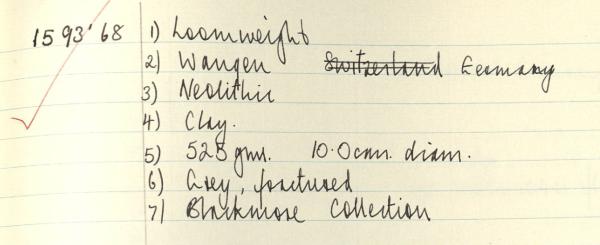 1593'68 1) Loomweight
2) Wangen Switzerland Germany
3) Neolithic
4) Clay.
5) 525 gms. 10.0cm. diam.
6) Grey, fractured
7) Blackmore Collection